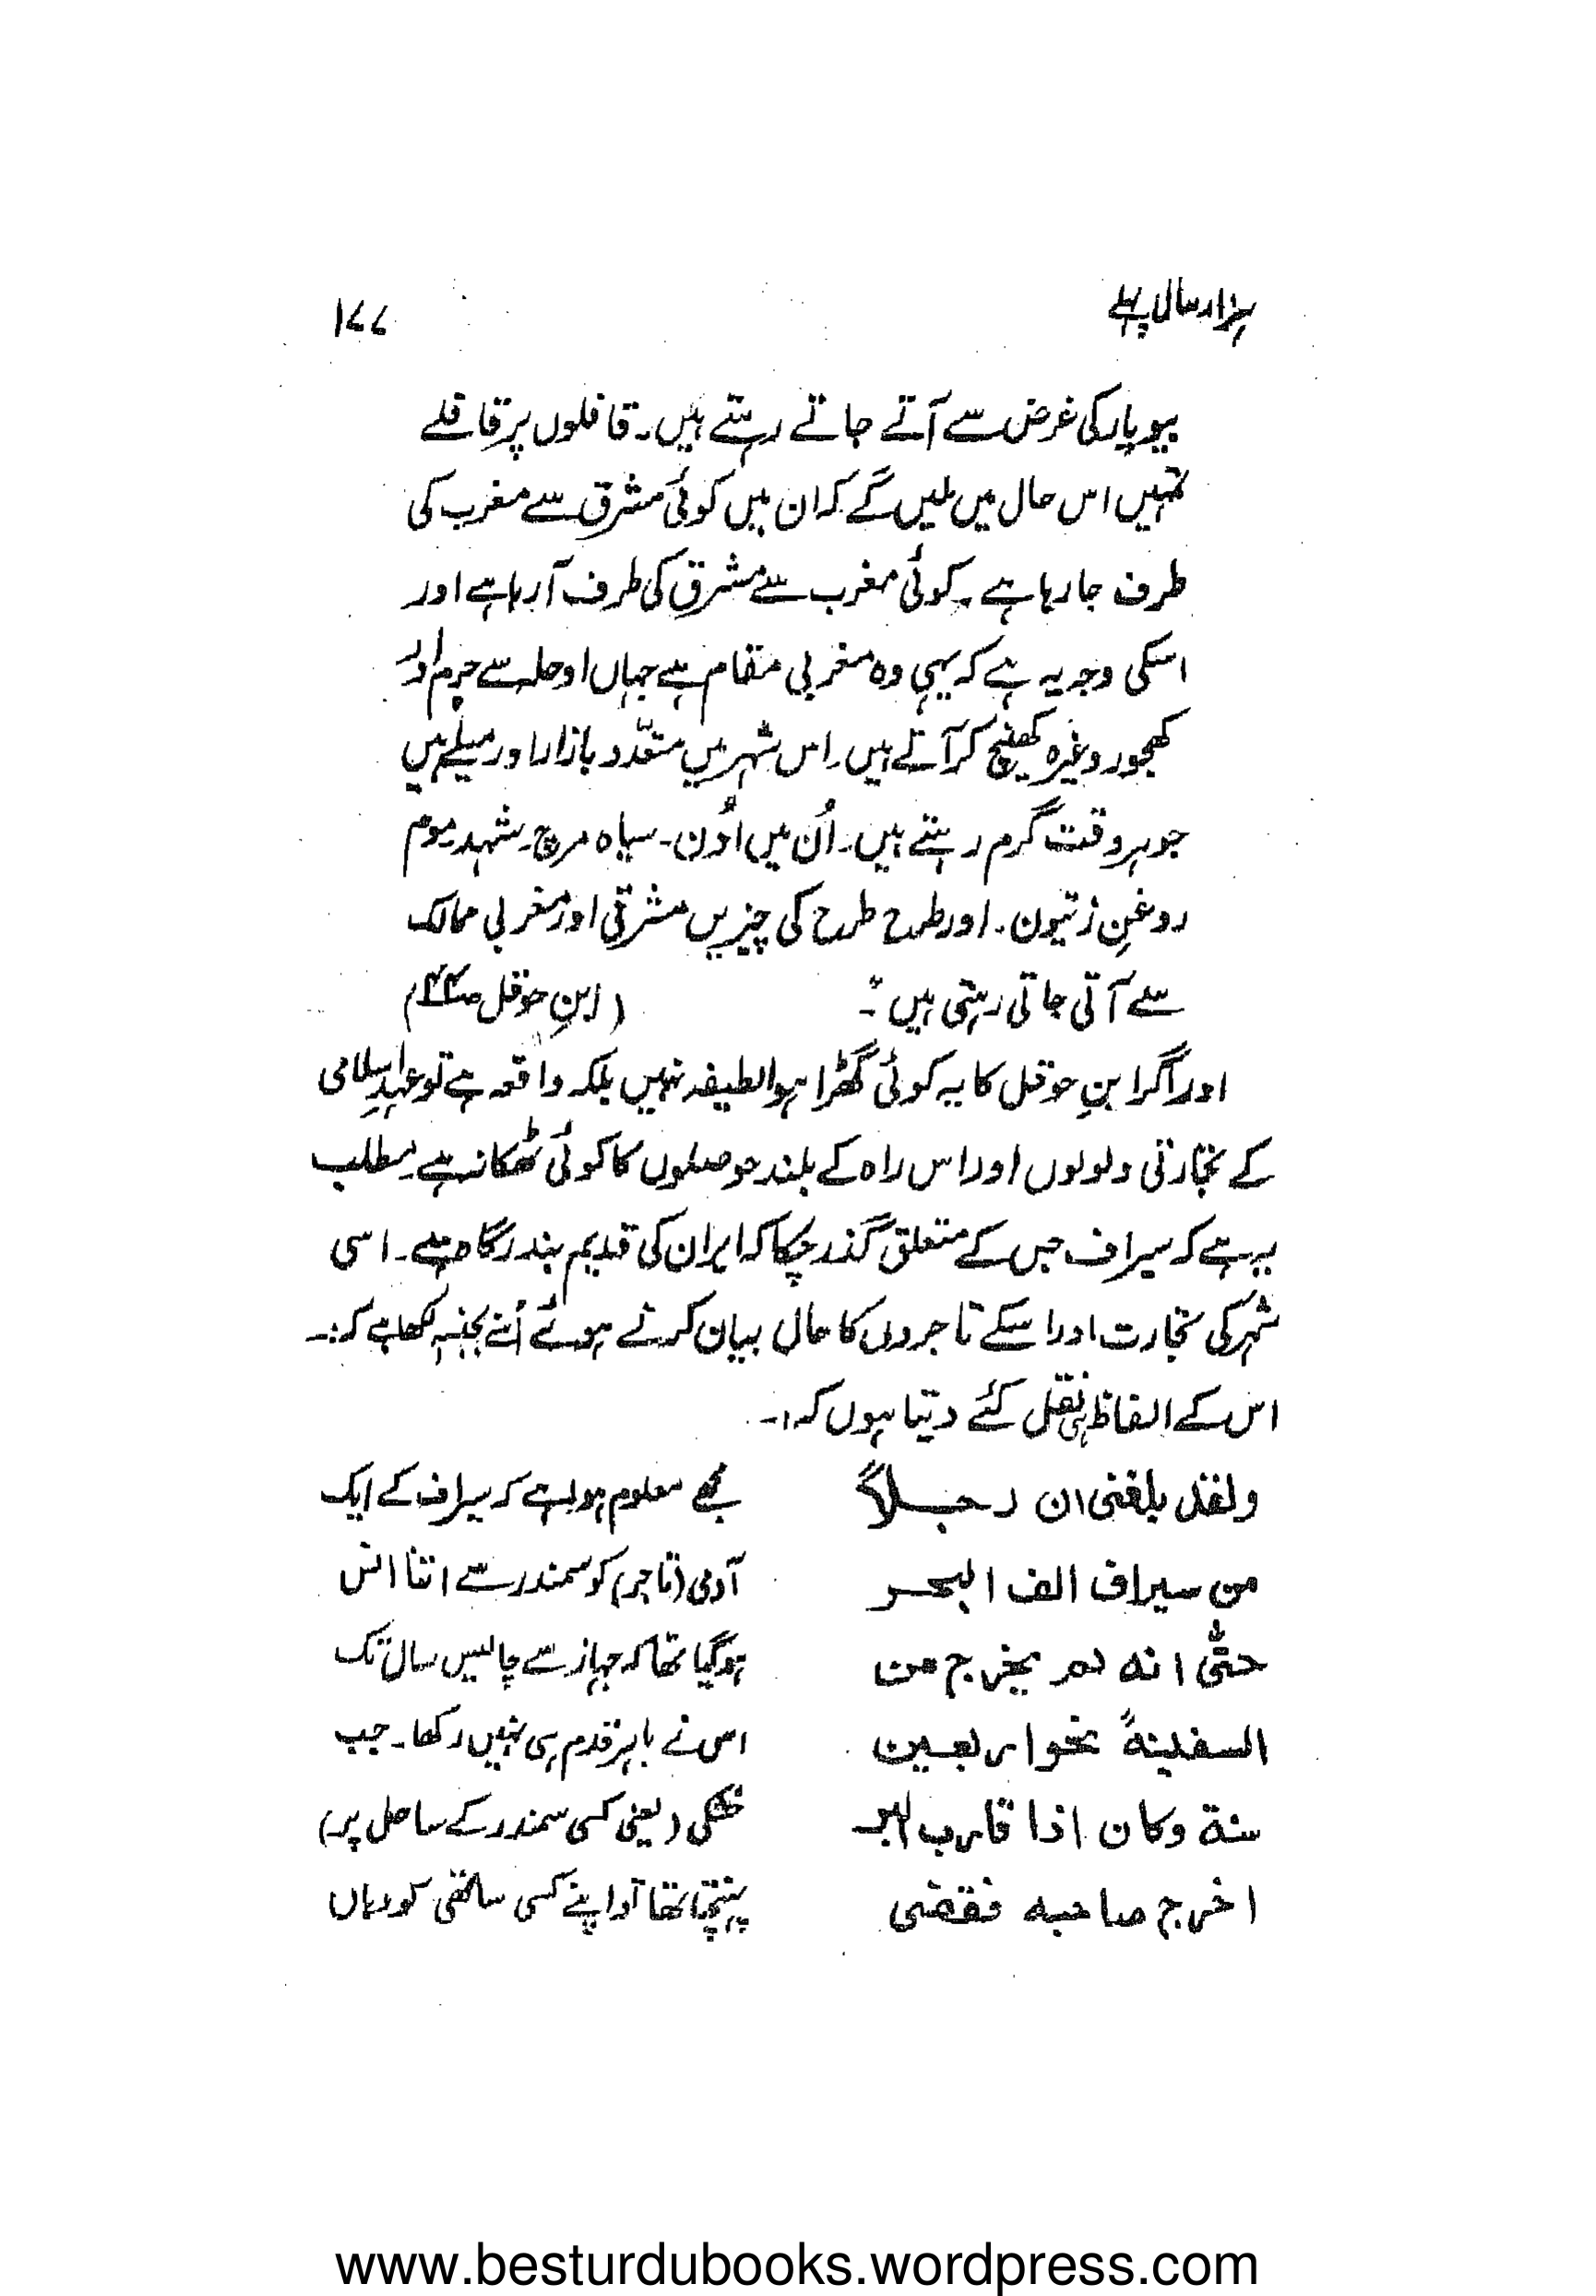 ہزار سال پہلے
۱۷۷
بیوپار کی غرض سے آتے جاتے رہتے ہیں۔ قافلوں پر قافلے
تمہیں اس حال میں ملیں گے کہ ان میں کوئی مشرق سے مغرب کی
طرف جا رہا ہے۔ کوئی مغرب سے مشرق کی طرف آ رہا ہے اور
اسکی وجہ یہ ہے کہ یہی وہ مغربی مقام ہے جہاں اوجلہ سے چرم اور
کھجور وغیرہ کھینچ کر آتے ہیں۔ اس شہر میں متعدّد بازار اور میلے ہیں
جو ہر وقت گرم رہتے ہیں۔ اُن میں اُون۔ سیاہ مرچ۔ شہد۔ موم
روغنِ زیتون۔ اور طرح طرح کی چیزیں مشرقی اور مغربی ممالک
سے آتی جاتی رہتی ہیں"۔ (ابنِ حوقل ص۴۴)
اور اگر ابنِ حوقل کا یہ کوئی گھڑا ہوا لطیفہ نہیں بلکہ واقعہ ہے تو عہدِ اسلامی
کے تجارتی ولولوں اور اس راہ کے بلند حوصلوں کا کوئی ٹھکانہ ہے۔ مطلب
یہ ہے کہ سیراف جس کے متعلق گذر چکا کہ ایران کی قدیم بندرگاہ ہے۔ اسی
شہر کی تجارت اور اسکے تاجروں کا حال بیان کرتے ہوئے اُسنے بجنسہٖ لکھا ہے کہ:۔
اس کے الفاظ ہی نقل کئے دیتا ہوں کہ:۔
ولقد بلغنی ان رجلاً
من سیراف الف البحر
حتّٰی انه لم یخرج من
السفینةً نحو اربعین
سنة وکان اذا قارب البر
اخرج صاحبه فقضی
مجھے معلوم ہوا ہے کہ سیراف کے ایک
آدمی (تاجر) کو سمندر سے اتنا انس
ہو گیا تھا کہ جہاز سے چالیس سال تک
اس نے باہر قدم ہی نہیں رکھا۔ جب
خشکی (یعنی کسی سمندر کے ساحل پر)
پہنچتا تھا تو اپنے کسی ساتھی کو وہاں
www.besturdubooks.wordpress.com